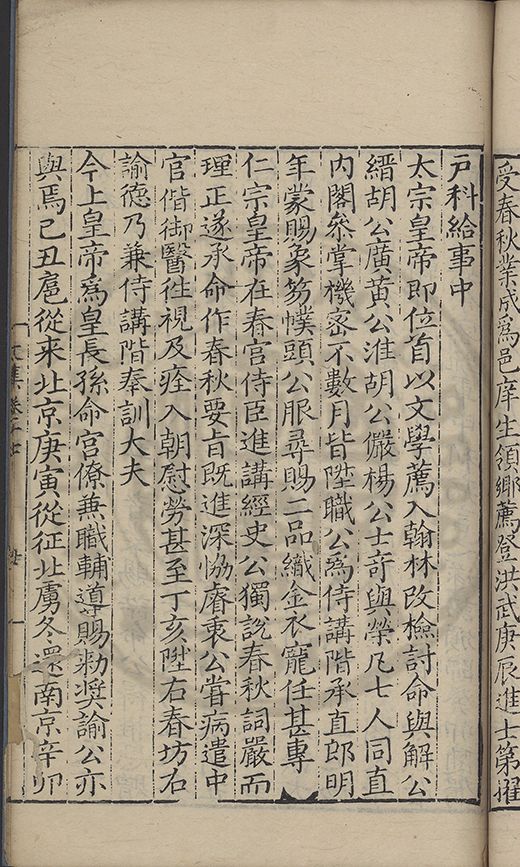 受春秋業成爲邑庠生領鄉薦登洪武庚辰進士第擢
戸科給事中
太宗皇帝即位首以文學薦入翰林改檢討命與解公
縉胡公廣黄公淮胡公儼楊公士竒與榮凡七人同直
内閣叅掌機宻不數月皆陞職公爲侍講階承直郎明
年蒙賜象笏幞頭公服尋賜二品織金衣寵任甚專
仁宗皇帝在春官侍臣進講經史公獨說春秋詞嚴而
理正遂承命作春秋要㫖既進深恊睿衷公甞病遣中
官偕御醫徃視及痊入朝慰勞甚至丁亥陞右春坊右
諭德乃兼侍講階奉訓大夫
今上皇帝爲皇長孫命宫僚兼職輔導賜勑奨諭公亦
與焉己丑扈從来北京庚寅從征北虜冬還南京辛卯